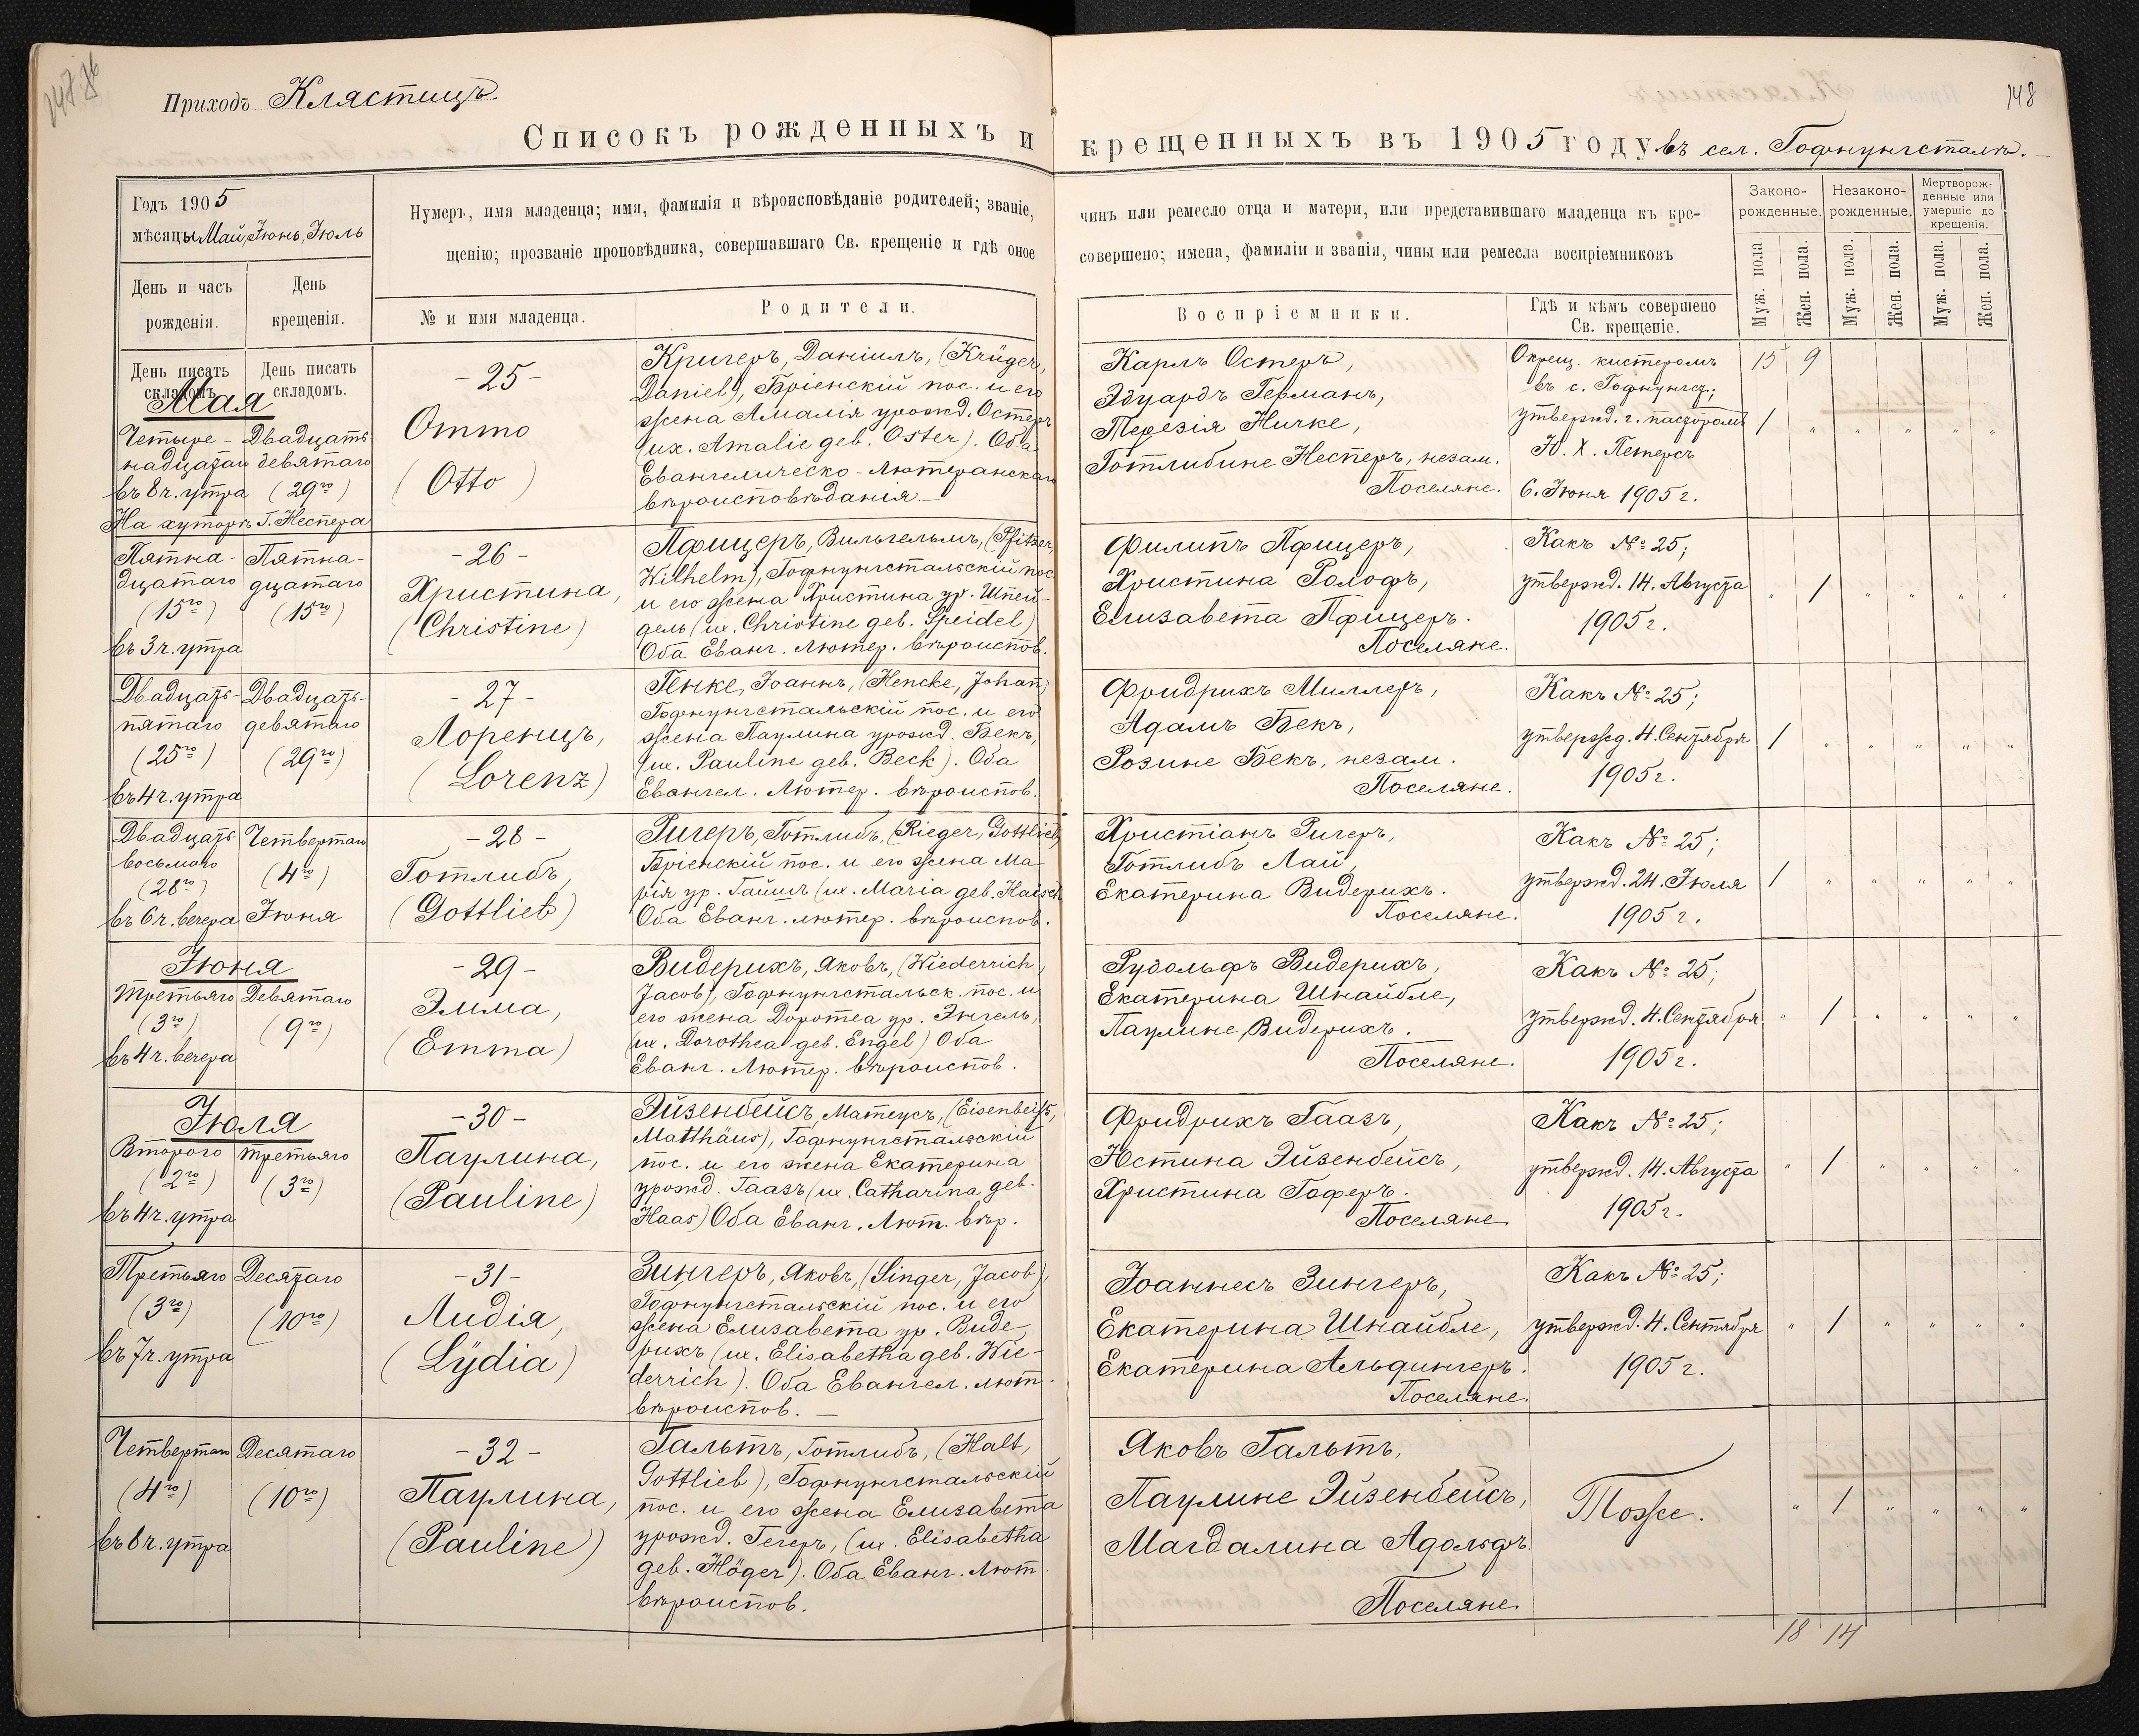 Приходъ Клястицъ.
148
Списокъ рожденныхъ и крещенныхъ въ 1905 году въ сел. Гофнунгсталѣ.
Годъ 1905
мѣсяцы Май, Іюнь, Іюль
Нумеръ, имя младенца; имя, фамилія и вѣроисповѣданіе родителей; званіе, чинъ или ремесло отца и матери, или представившаго младенца къ кре-
щенію; прозваніе проповѣдника, совершавшаго Св. крещеніе и гдѣ оное совершено; имена, фамиліи и званія, чины или ремесла воспріемниковъ
Законо-
рожденные.
Незаконо-
рожденные.
Мертворож-
денные или
умершіе до
крещенія.
День и часъ
рожденія.
День
крещенія.
№ и имя младенца.
Родители.
Воспріемники.
Гдѣ и кѣмъ совершено
Св. крещеніе.
Муж. пола
Жен. пола.
Муж. пола.
Жен. пола.
Муж. пола.
Жен. пола.
День писать
складомъ.
День писать
складомъ.
15 9
Мая
Четыре-
надцатаго
въ 8 ч. утра
Двадцать
девятаго
(29го)
На хуторѣ Г. Неспера
-25-
Отто
(Otto)
Кригеръ, Даніилъ, (Krüger,
Daniel), Бріенскій пос. и его
жена Амалія урожд. Остеръ
(их. Amalie geb. Oster). Оба
Евангелическо-Лютеранскаго
вѣроисповѣданія.
Карлъ Остеръ,
Эдуардъ Германъ,
Терезія Ничке,
Готлибине Несперъ, незам.
Поселяне.
Окрещ. кистеромъ
въ с. Гофнунгст.;
утвержд. г. пасторомъ
Ю. Х. Петерсъ
6. Іюня 1905 г.
1 " " " " "
Пятна-
дцатаго
(15го)
въ 3 ч. утра
Пятна-
дцатаго
(15го)
-26-
Христина,
(Christine)
Пфицеръ, Вильгельмъ, (Pfitzer,
Wilhelm), Гофнунгстальскій пос.
и его жена Христина ур. Шпей-
дель (их. Christine geb. Speidel)
Оба Еванг. Лютер. вѣроиспов.
Филипъ Пфицеръ,
Христина Ролофъ,
Елизавета Пфицеръ.
Поселяне.
Какъ № 25;
утвержд. 14. Августа
1905 г.
" 1 " " " "
Двадцать-
пятаго
(25го)
въ 4 ч. утра
Двадцать-
девятаго
(29го)
-27-
Лоренцъ,
(Lorenz)
Генке, Іоаннъ, (Hencke, Johan)
Гофнунгстальскій пос. и его
жена Паулина урожд. Бекъ,
(их. Pauline geb. Beck). Оба
Евангел. Лютер. вѣроиспов.
Фридрихъ Миллеръ,
Адамъ Бекъ,
Розине Бекъ, незам.
Поселяне.
Какъ № 25;
утвержд. 4. Сентября
1905 г.
1 " " " " "
Двадцать
восьмого
(28го)
въ 6 ч. вечера
Четвертаго
(4го)
Іюня
-28-
Готлибъ,
(Gottlieb)
Ригеръ, Готлибъ, (Rieger, Gottlieb)
Бріенскій пос. и его жена Ма-
рія ур. Гайшъ (их. Maria geb. Haisch
Оба Еванг. лютер. вѣроиспов.
Христіанъ Ригеръ,
Готлибъ Лай,
Екатерина Видерихъ.
Поселяне.
Какъ № 25;
утвержд. 24. Іюля
1905 г.
1 " " " " "
Іюня
Третьяго
(3го)
въ 4 ч. вечера
Девятаго
(9го)
-29-
Эмма,
(Emma)
Видерихъ, Яковъ, (Wiederrich,
Jacob), Гофнунгстальск. пос. и
его жена Доротеа ур. Энгель,
(их. Dorothea geb. Engel) Оба
Еванг. Лютер. вѣроиспов.
Рудольфъ Видерихъ,
Екатерина Шнайбле,
Паулине Видерихъ.
Поселяне.
Какъ № 25;
утвержд. 4. Сентября
1905 г.
" 1 " " " "
Іюля
Второго
(2го)
въ 4 ч. утра
третьяго
(3го)
-30-
Паулина,
(Pauline)
Эйзенбейсъ, Матеусъ, (Eisenbeiß,
Matthäus), Гофнунгстальскій
пос. и его жена Екатерина
урожд. Гаазъ (их. Catharina geb.
Haas) Оба Еванг. Лют. вѣр.
Фридрихъ Гаазъ,
Юстина Эйзенбейсъ,
Христина Гоферъ.
Поселяне.
Какъ № 25;
утвержд. 14. Августа
1905 г.
" 1 " " " "
Третьяго
(3го)
въ 7 ч. утра
Десятаго
(10го)
-31-
Лидія,
(Lÿdia)
Зингеръ, Яковъ, (Singer, Jacob),
Гофнунгстальскій пос. и его
жена Елизавета ур. Виде-
рихъ (их. Elisabetha geb. Wie-
derrich). Оба Евангел. лют.
вѣроиспов.
Іоаннесъ Зингеръ,
Екатерина Шнайбле,
Екатерина Альдингеръ.
Поселяне.
Какъ № 25;
утвержд. 4. Сентября
1905 г.
" 1 " " " "
Четвертаго
(4го)
въ 8 ч. утра
Десятаго
(10го)
-32-
Паулина,
(Pauline)
Гальтъ, Готлибъ, (Halt,
Gottlieb), Гофнунгстальскій
пос. и его жена Елизавета
урожд. Гегеръ, (их. Elisabetha
geb. Höger). Оба Еванг. Лют.
вѣроиспов.
Яковъ Гальтъ,
Паулине Эйзенбейсъ,
Магдалина Адольфъ.
Поселяне.
Тоже.
" 1 " " " "
18 14